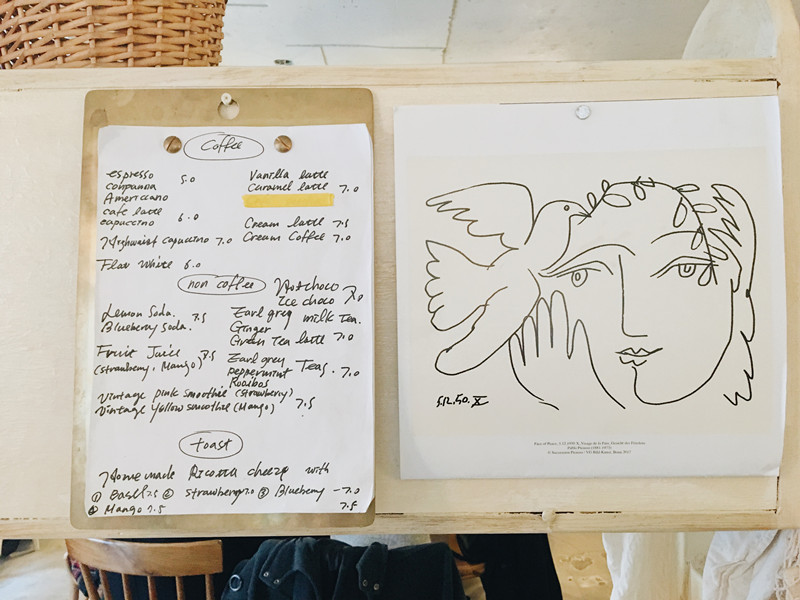 Coffee
espresso
conpanna 5.0
Americano
cafe latte
capuccino 6.0
Highwaist capuccino 7.0
Flat White 6.0
Vanilla latte
Caramel latte 7.0
Cream latte 7.5
Cream Coffee 7.0
non coffee
Hot choco
Ice choco 7.0
Lemon Soda. 7.5
Blueberry Soda.
Fruit Juice 7.5
(strawberry, Mango)
Earl grey milk Tea.
Ginger
Green Tea latte 7.0
Earl grey
peppermint Teas. 7.0
Rooibos
Vintage pink smoothie (strawberry)
Vintage Yellow smoothie (Mango) 7.5
toast
Homemade Ricotta cheeze with
① Basil 7.5 ② strawberry 7.0 ③ Blueberry - 7.0
④ Mango 7.5 7.5
5.12.50. X